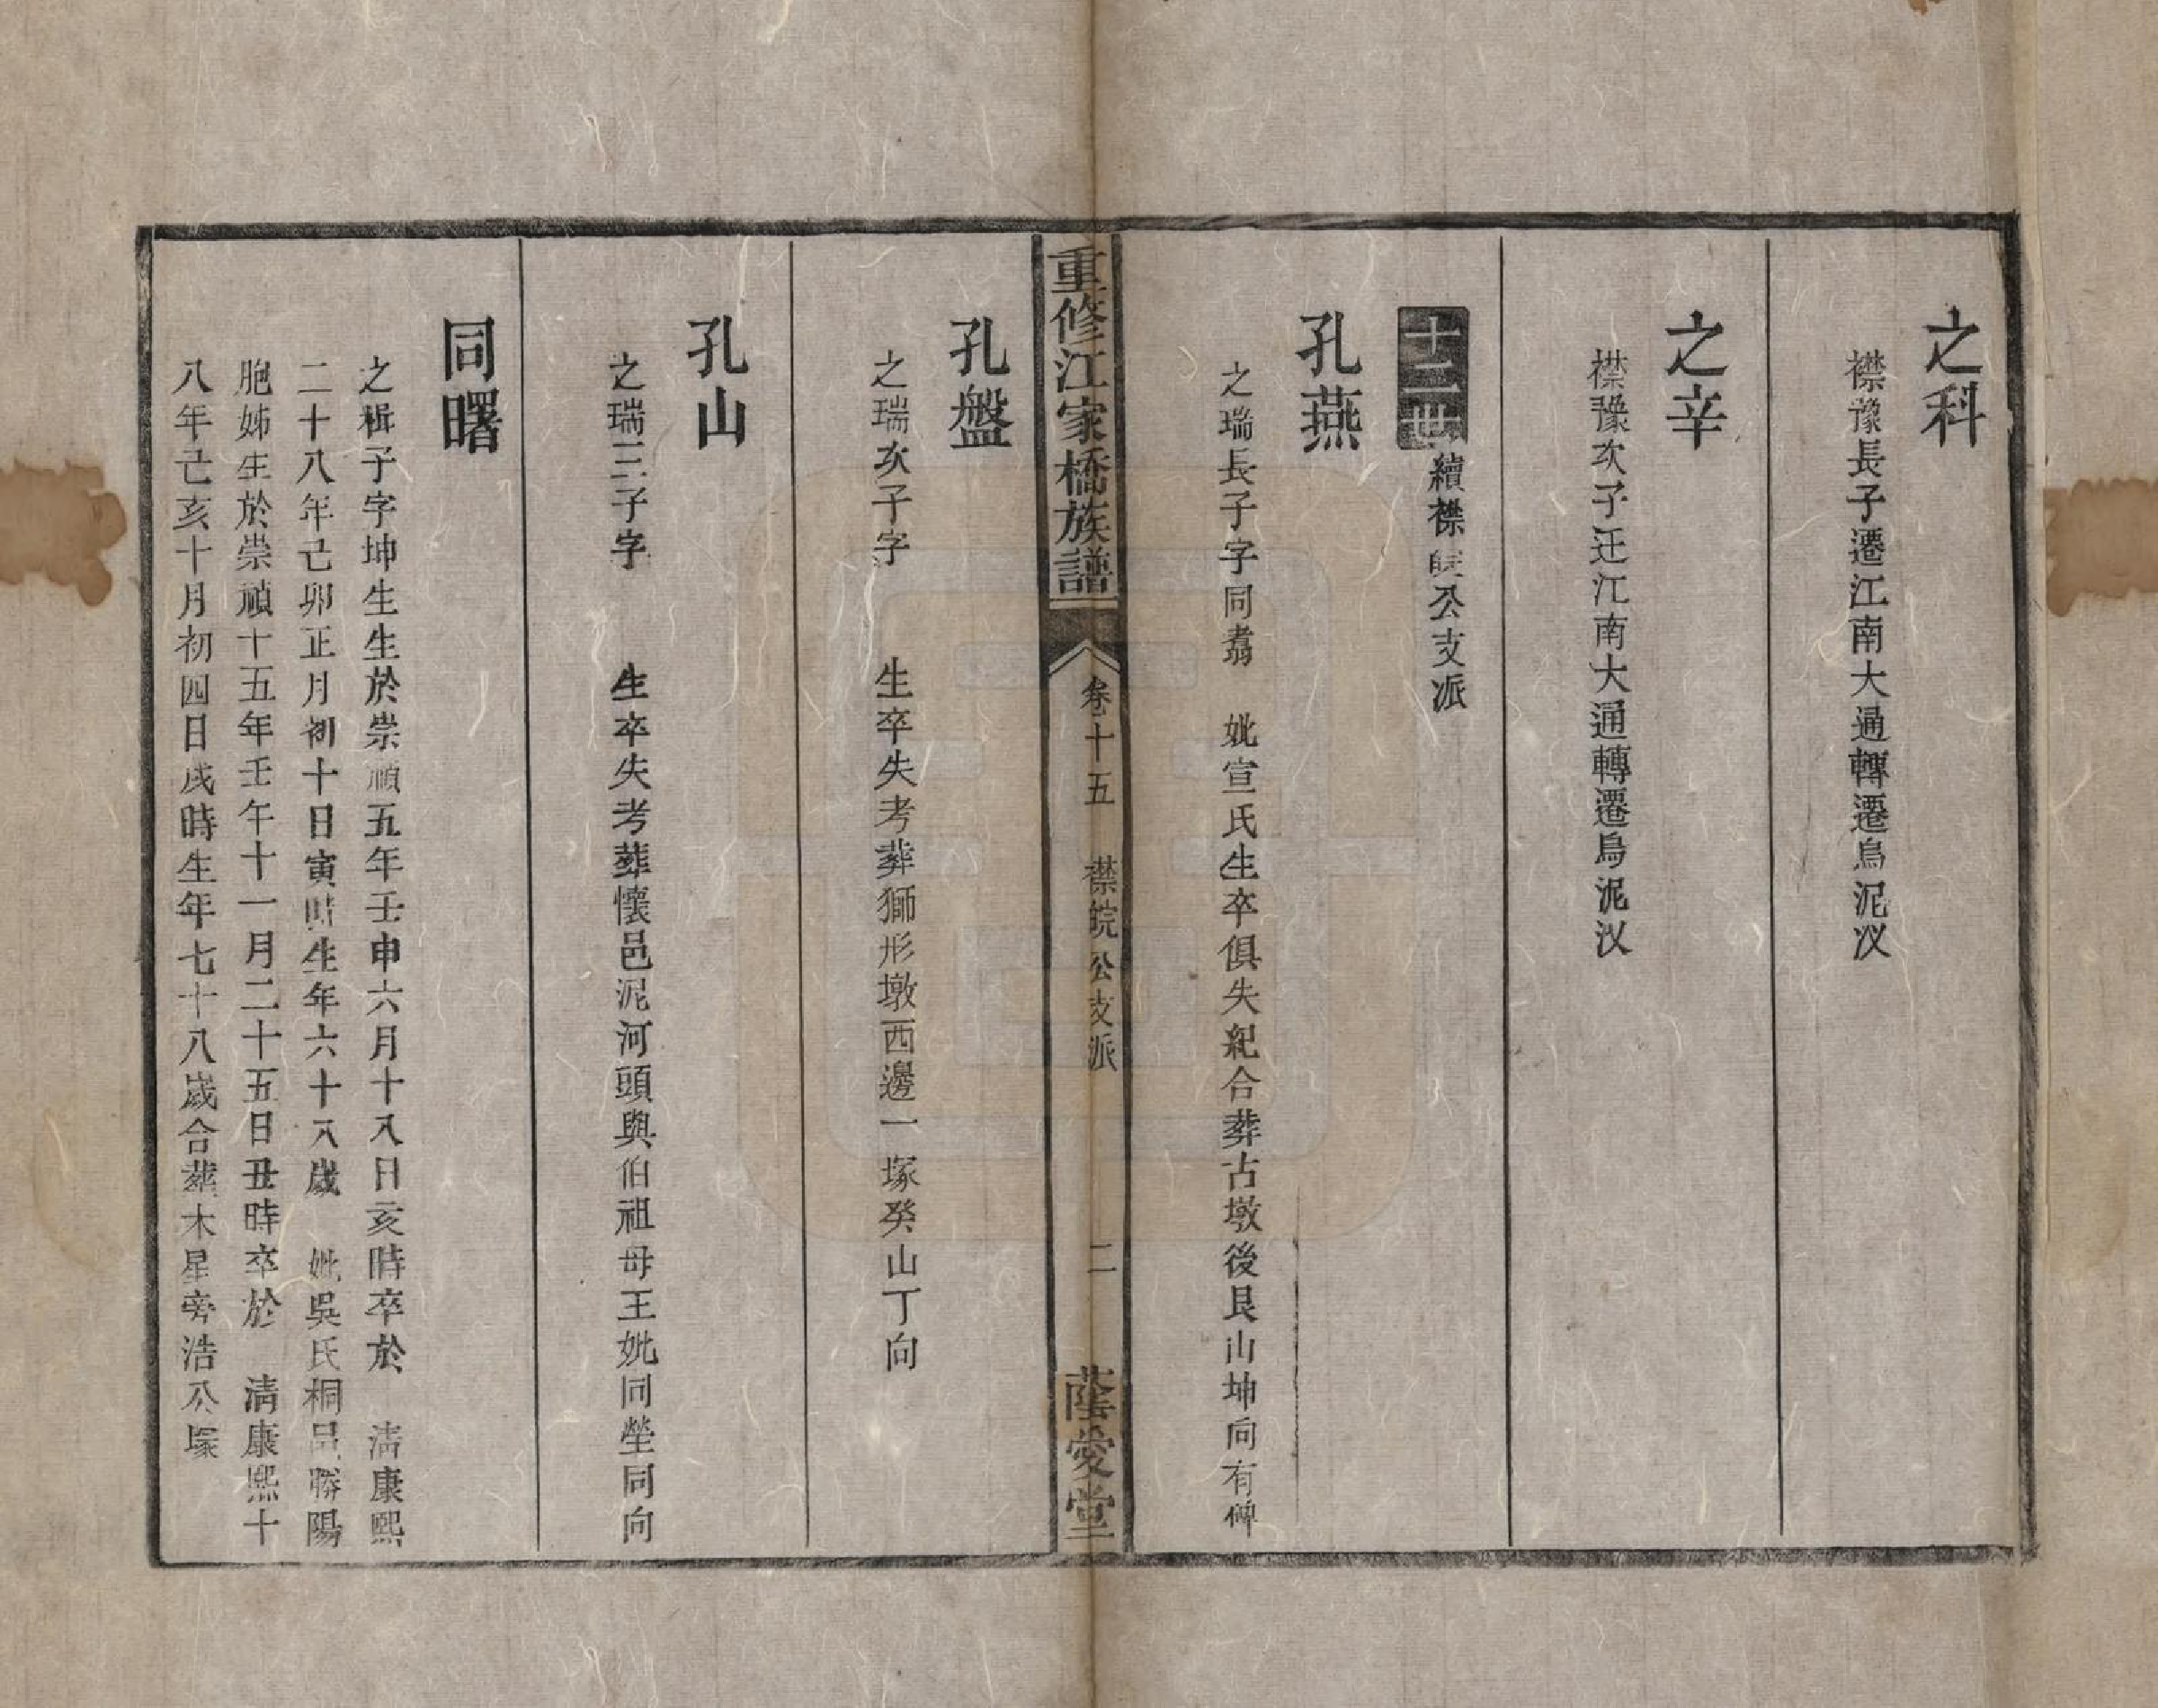 之科
襟豫長子遷江南大通轉遷烏泥汊
之辛
襟豫次子迁江南大通轉遷烏泥汊
十二世續襟皖公支派
孔燕
之瑞長子字同翥 妣宣氏生卒俱失紀合葬古墩後艮山坤向有碑
重修江家橋族譜 卷十五 襟皖公支派 二 蔭愛堂
孔盤
之瑞次子字 生卒失考葬獅形墩西邊一塚癸山丁向
孔山
之瑞三子字 生卒失考葬懷邑泥河頭與伯祖母王妣同塋同向
同曙
之楫子字坤生生於崇禎五年壬申六月十八日亥時卒於 清康熙
二十八年己卯正月初十日寅時生年六十八歲 妣吳氏桐邑勝陽
胞姊生於崇禎十五年壬午十一月二十五日丑時卒於 清康熙十
八年己亥十月初四日戌時生年七十八歲合葬木星旁浩公塚